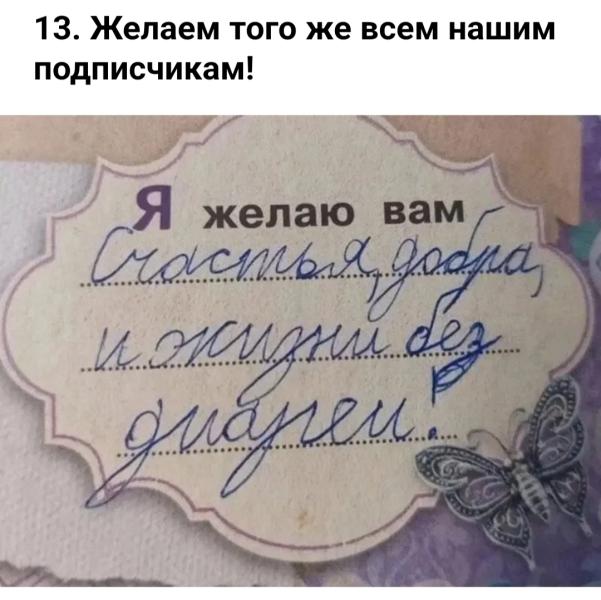 13. Желаем того же всем нашим
подписчикам!
Я желаю вам
Счастья, добра,
и жизни без
диареи!